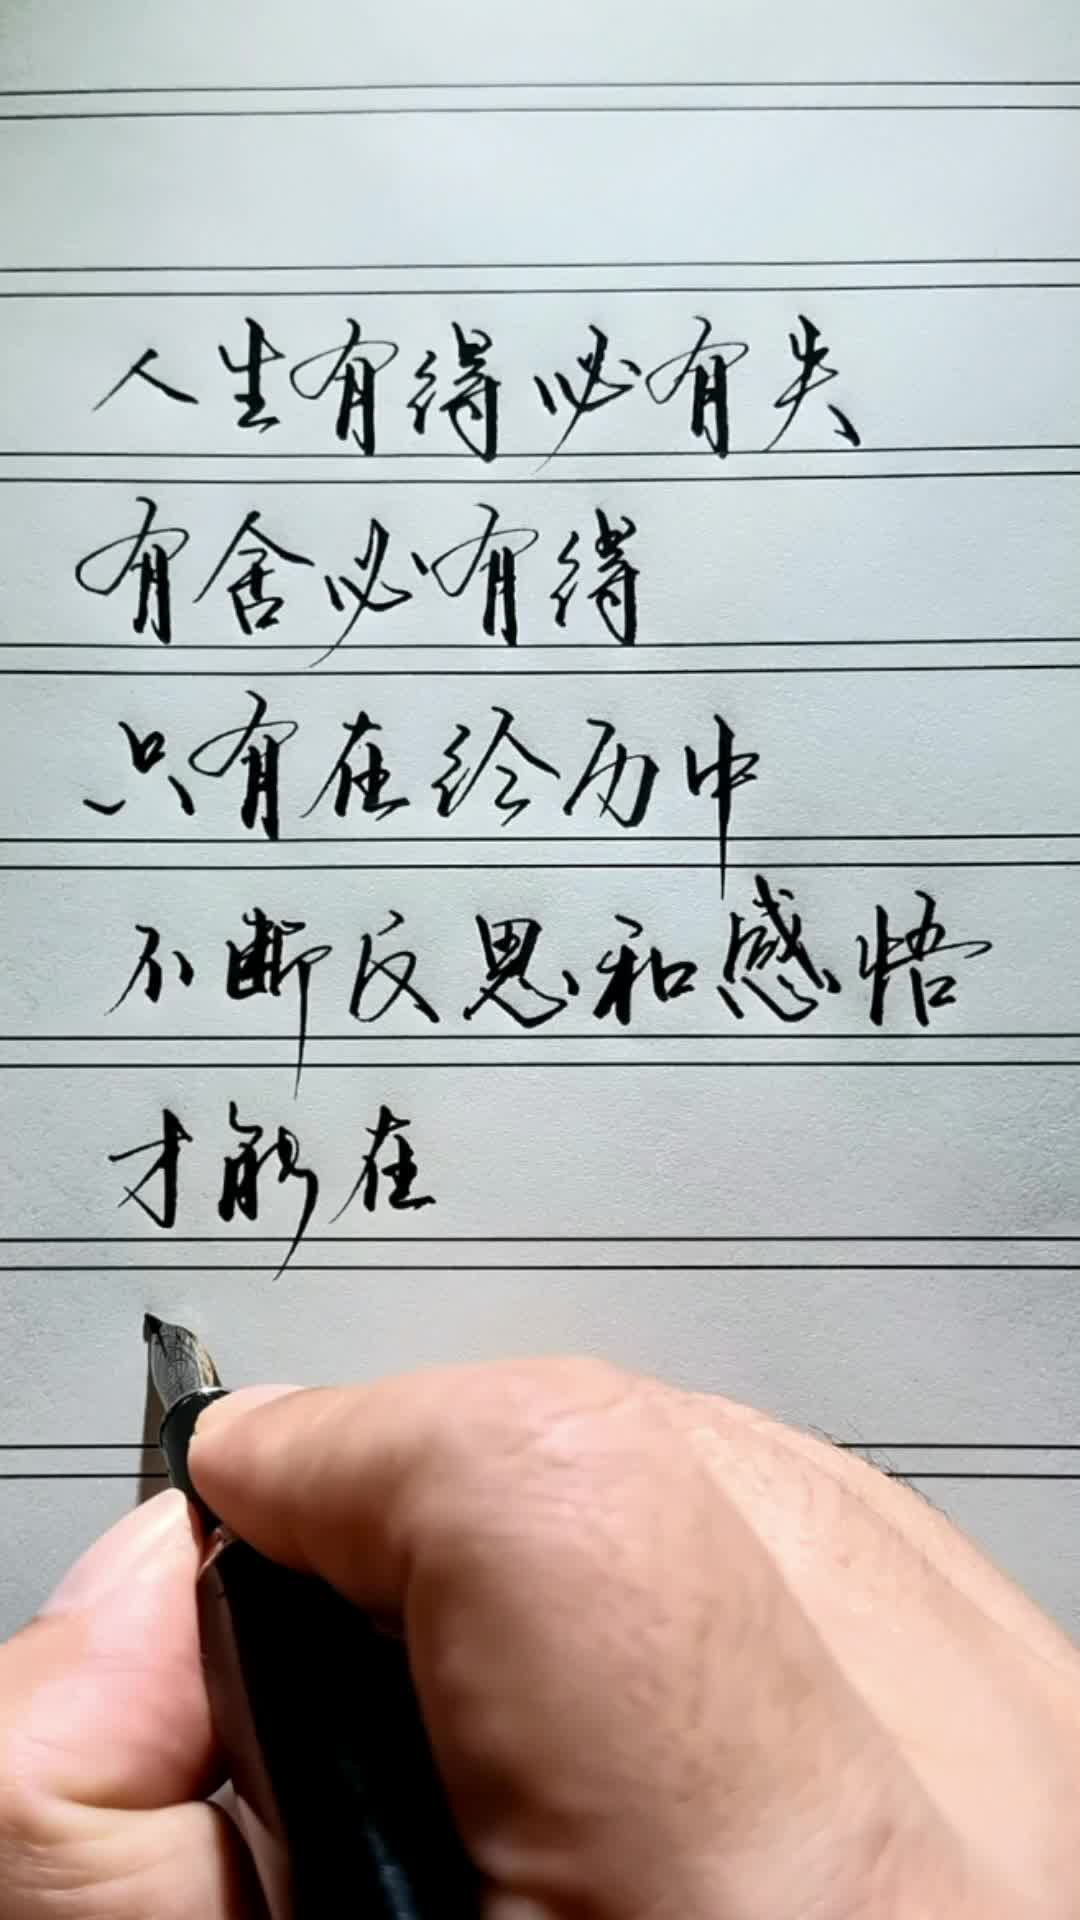 人生有得必有失
有舍必有得
只有在经历中
不断反思和感悟
才能在